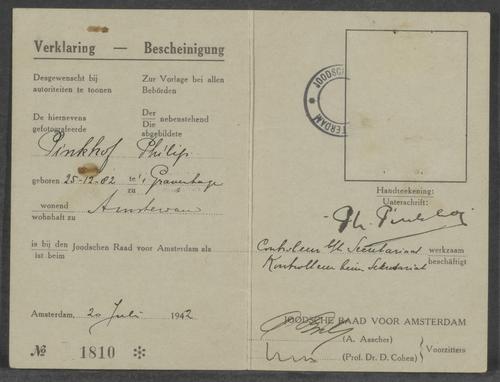 Verklaring — Bescheinigung
Desgewenscht bij autoriteiten te toonen
Zur Vorlage bei allen Behörden
De hiernevens gefotografeerde
Der
Die nebenstehend abgebildete
Pinkhof Philip
geboren 25-12-02 te 's Gravenhage
zu
wonend
wohnhaft zu Amsterdam
is bij den Joodschen Raad voor Amsterdam als
ist beim
Amsterdam, 20 Juli 1942
№ 1810 ✻
Handteekening:
Unterschrift:
Ph. Pinkhof
Controleur b/h Secretariaat werkzaam
Kontrolleur beim Sekretariat beschäftigt
JOODSCHE RAAD VOOR AMSTERDAM
(A. Asscher)
(Prof. Dr. D. Cohen)
Voorzitters